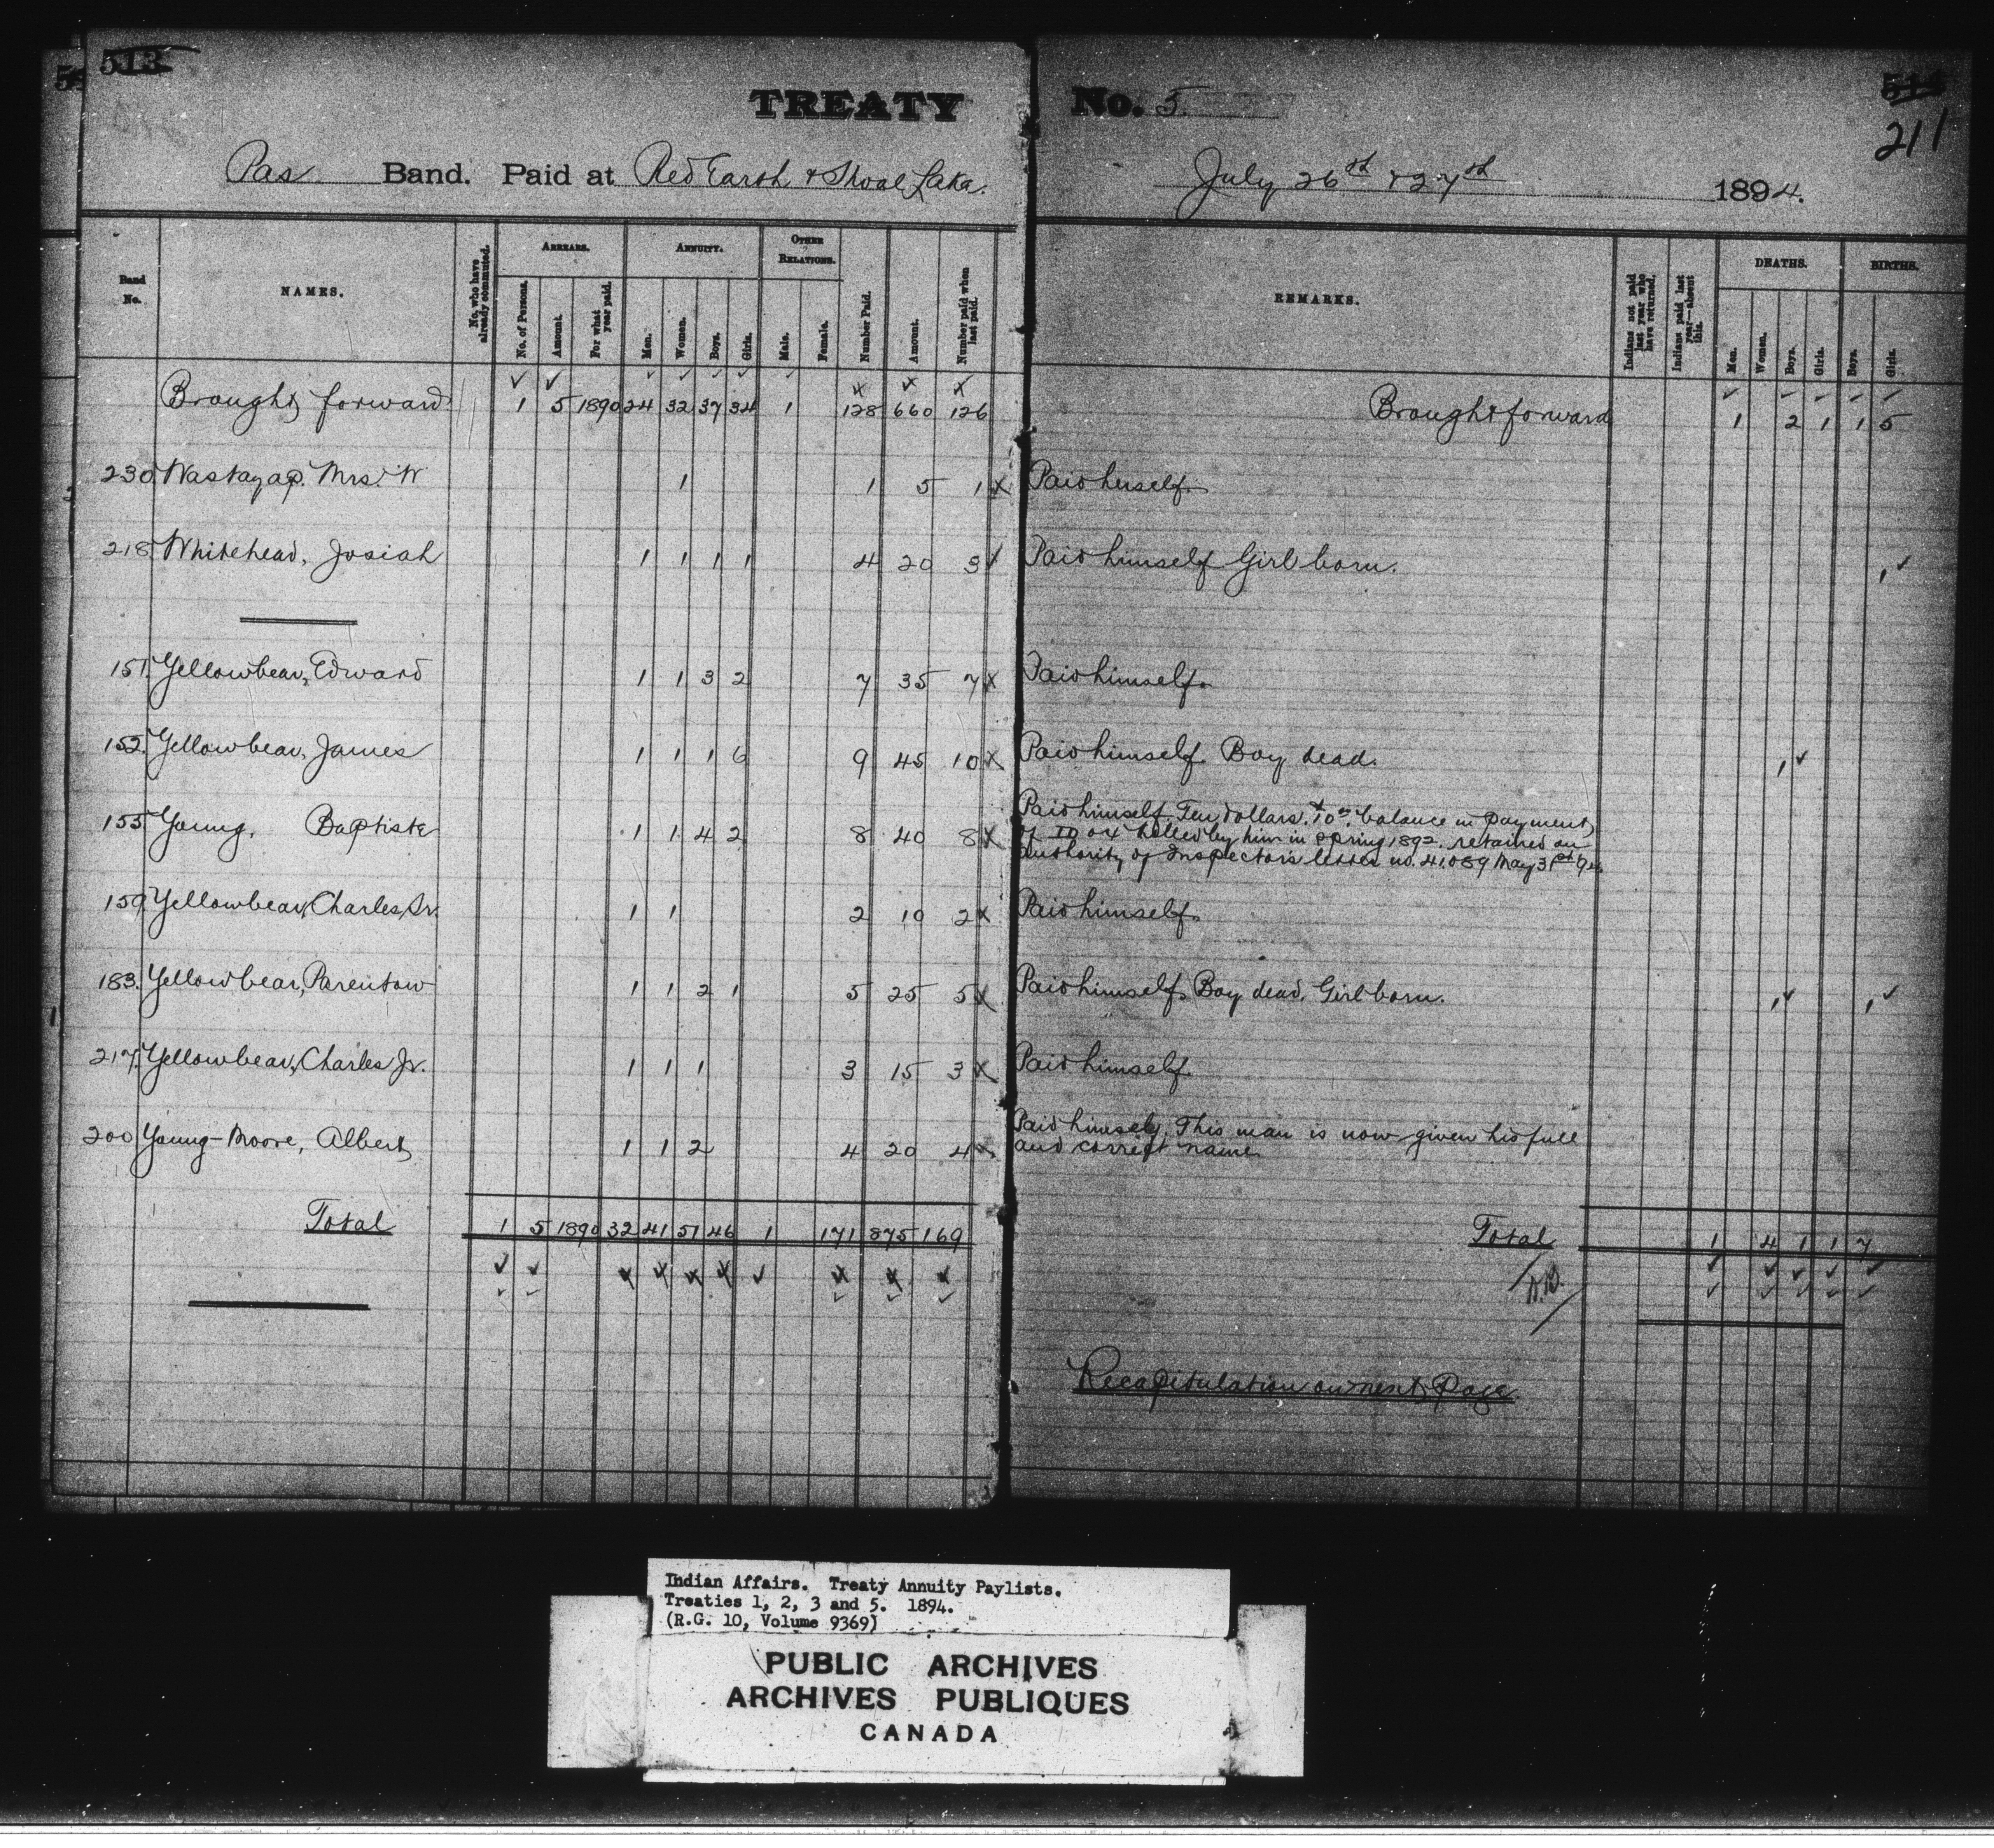 513
TREATY No. 5.
211
Pas Band. Paid at Red Earth & Shoal Lake. July 26th & 27th 1894.
Band No. NAMES. No. who have already commuted. ARREARS. No. of Persons. Amount. For what year paid. ANNUITY. Men. Women. Boys. Girls. OTHER RELATIONS. Male. Female. Number Paid. Amount. Number paid when last paid. REMARKS. Indians not paid last year who have returned. Indians paid last year—absent this. DEATHS. Men. Women. Boys. Girls. BIRTHS. Boys. Girls.
Brought forward 1 5 1890 24 32 37 34 1 128 660 126 Brought forward 1 2 1 1 5
230 Wastayap. Mrs. W 1 1 5 1 Paid herself.
218 Whitehead, Josiah 1 1 1 1 4 20 3 Paid himself Girl born. 1
151. Yellowbear, Edward 1 1 3 2 7 35 7 Paid himself.
152. Yellowbear, James 1 1 1 6 9 45 10 Paid himself. Boy dead. 1
155 Young, Baptiste 1 1 4 2 8 40 8 Paid himself. Ten dollars balance in payment
of ox killed by him in spring 1892. retained on
authority of Inspector's letter no. 41089 May 31st
159. Yellowbear, Charles, Sr. 1 1 2 10 2 Paid himself.
183. Yellowbear, Parentow 1 1 2 1 5 25 5 Paid himself. Boy dead. Girl born. 1 1
217. Yellowbear, Charles Jr. 1 1 1 3 15 3 Paid himself.
200 Young-Moore, Albert 1 1 2 4 20 4 Paid himself. This man is now given his full
and correct name.
Total 1 5 1890 32 41 51 46 1 171 875 169 Total 1 4 1 1 7
Recapitulation on next Page
Indian Affairs. Treaty Annuity Paylists.
Treaties 1, 2, 3 and 5. 1894.
(R.G. 10, Volume 9369)
PUBLIC ARCHIVES
ARCHIVES PUBLIQUES
CANADA